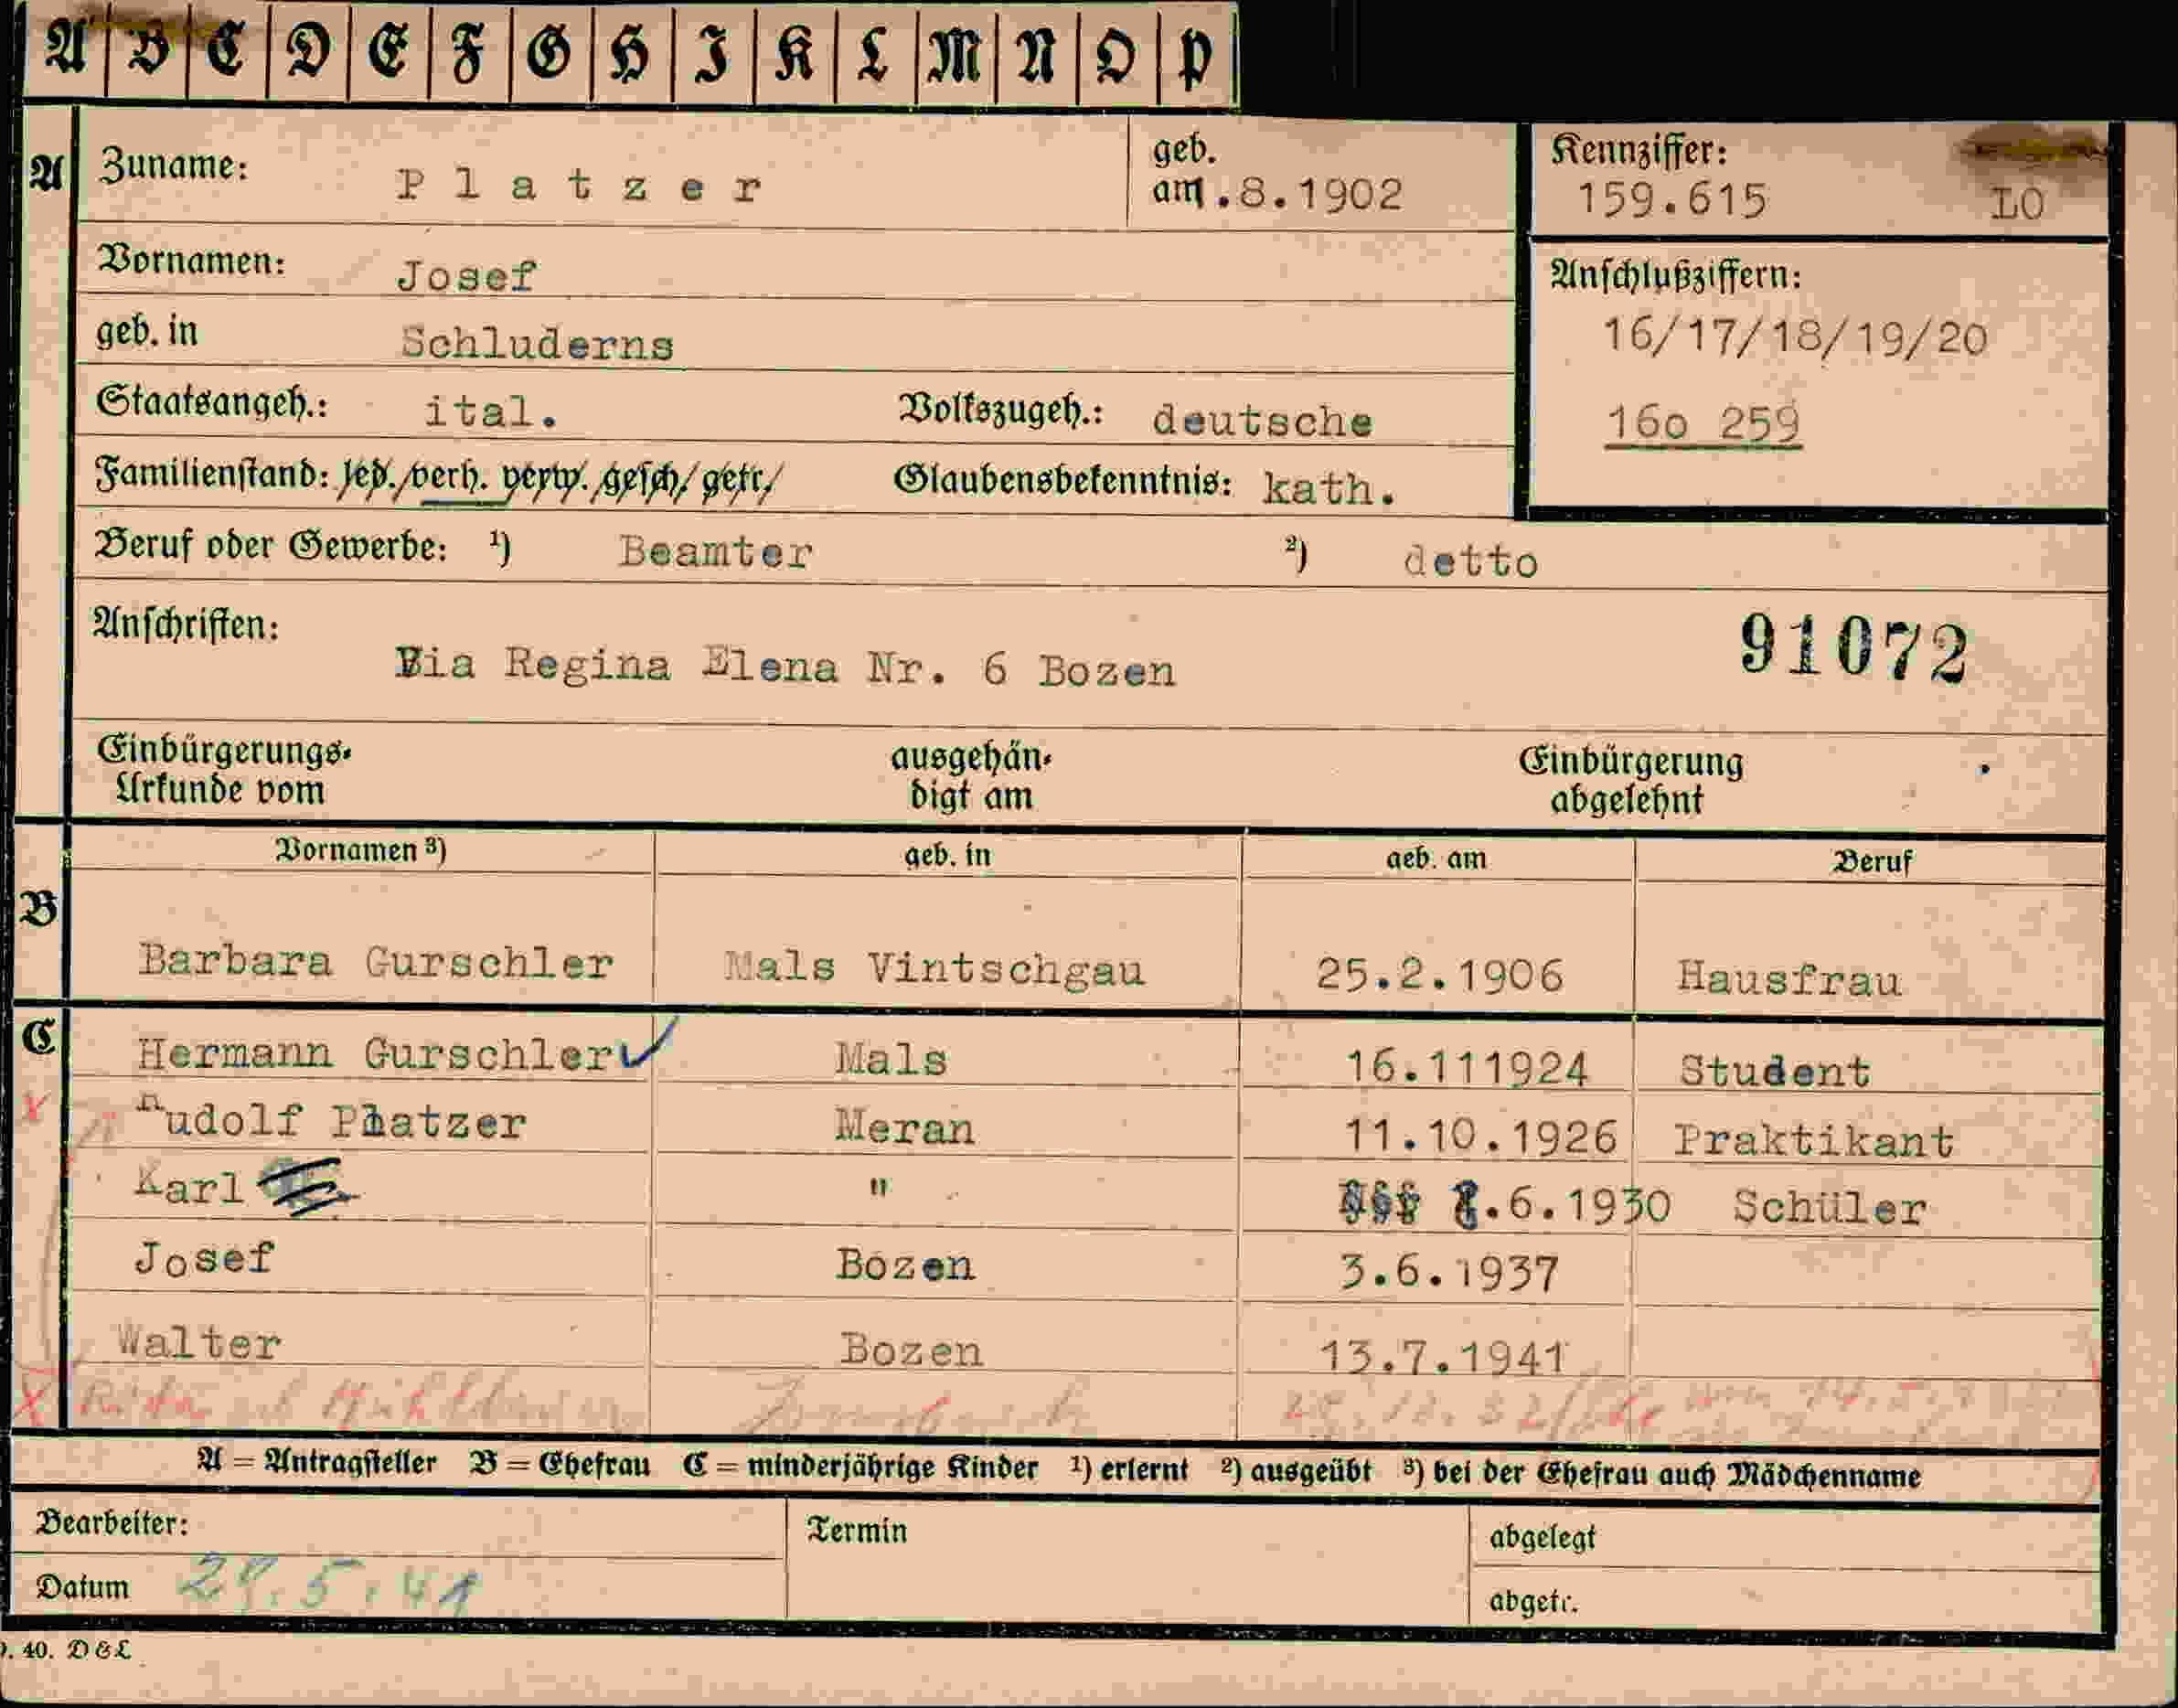 A B C D E F G H I K L M N O P
A Zuname: Platzer geb. am .8.1902 Kennziffer: 159.615 LO
Vornamen: Josef Anschlußziffern:
geb. in Schluderns 16/17/18/19/20
Staatsangeh.: ital. Volkszugeh.: deutsche 16o 259
Familienstand: led./verh. verw./gesch/getr/ Glaubensbekenntnis: kath.
Beruf oder Gewerbe: ¹) Beamter ²) detto
Anschriften: 91072
Via Regina Elena Nr. 6 Bozen
Einbürgerungs- ausgehän- Einbürgerung
Urkunde vom digt am abgelehnt
Vornamen ³) geb. in geb. am Beruf
B Barbara Gurschler Mals Vintschgau 25.2.1906 Hausfrau
C Hermann Gurschler Mals 16.111924 Student
Rudolf Platzer Meran 11.10.1926 Praktikant
Karl " .6.1930 Schüler
Josef Bozen 3.6.1937
Walter Bozen 13.7.1941
A = Antragsteller B = Ehefrau C = minderjährige Kinder ¹) erlernt ²) ausgeübt ³) bei der Ehefrau auch Mädchenname
Bearbeiter: Termin abgelegt
Datum 29.5.41 abgetr.
. 40. D & L